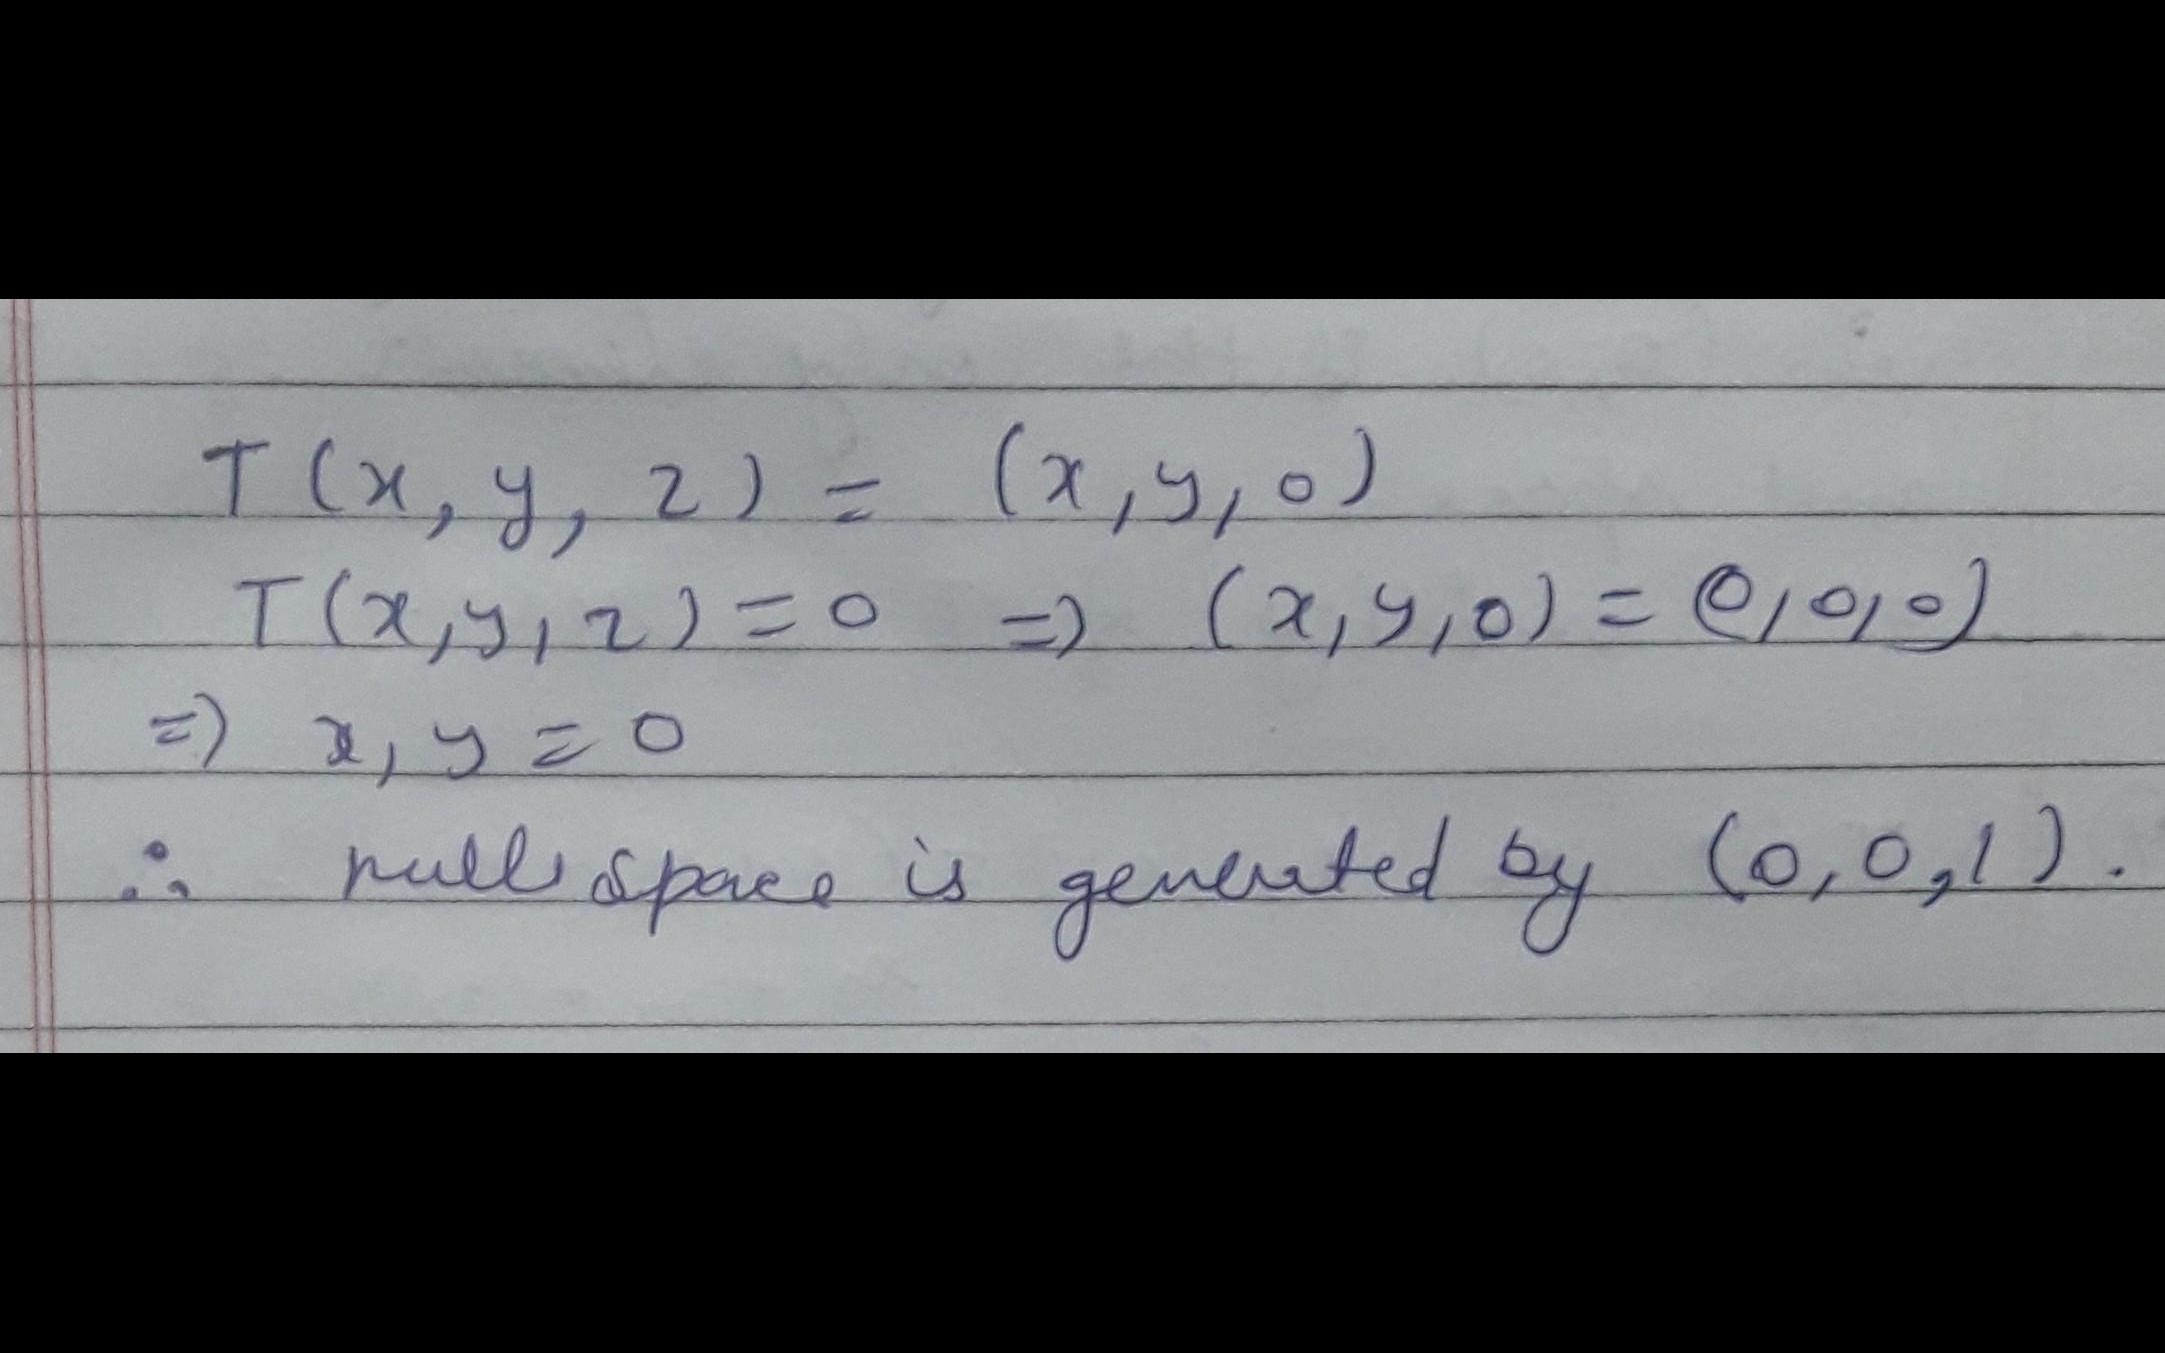 T(x, y, z) = (x, y, 0)
T(x, y, z) = 0 => (x, y, 0) = (0, 0, 0)
=> x, y = 0
∴ null space is generated by (0, 0, 1).